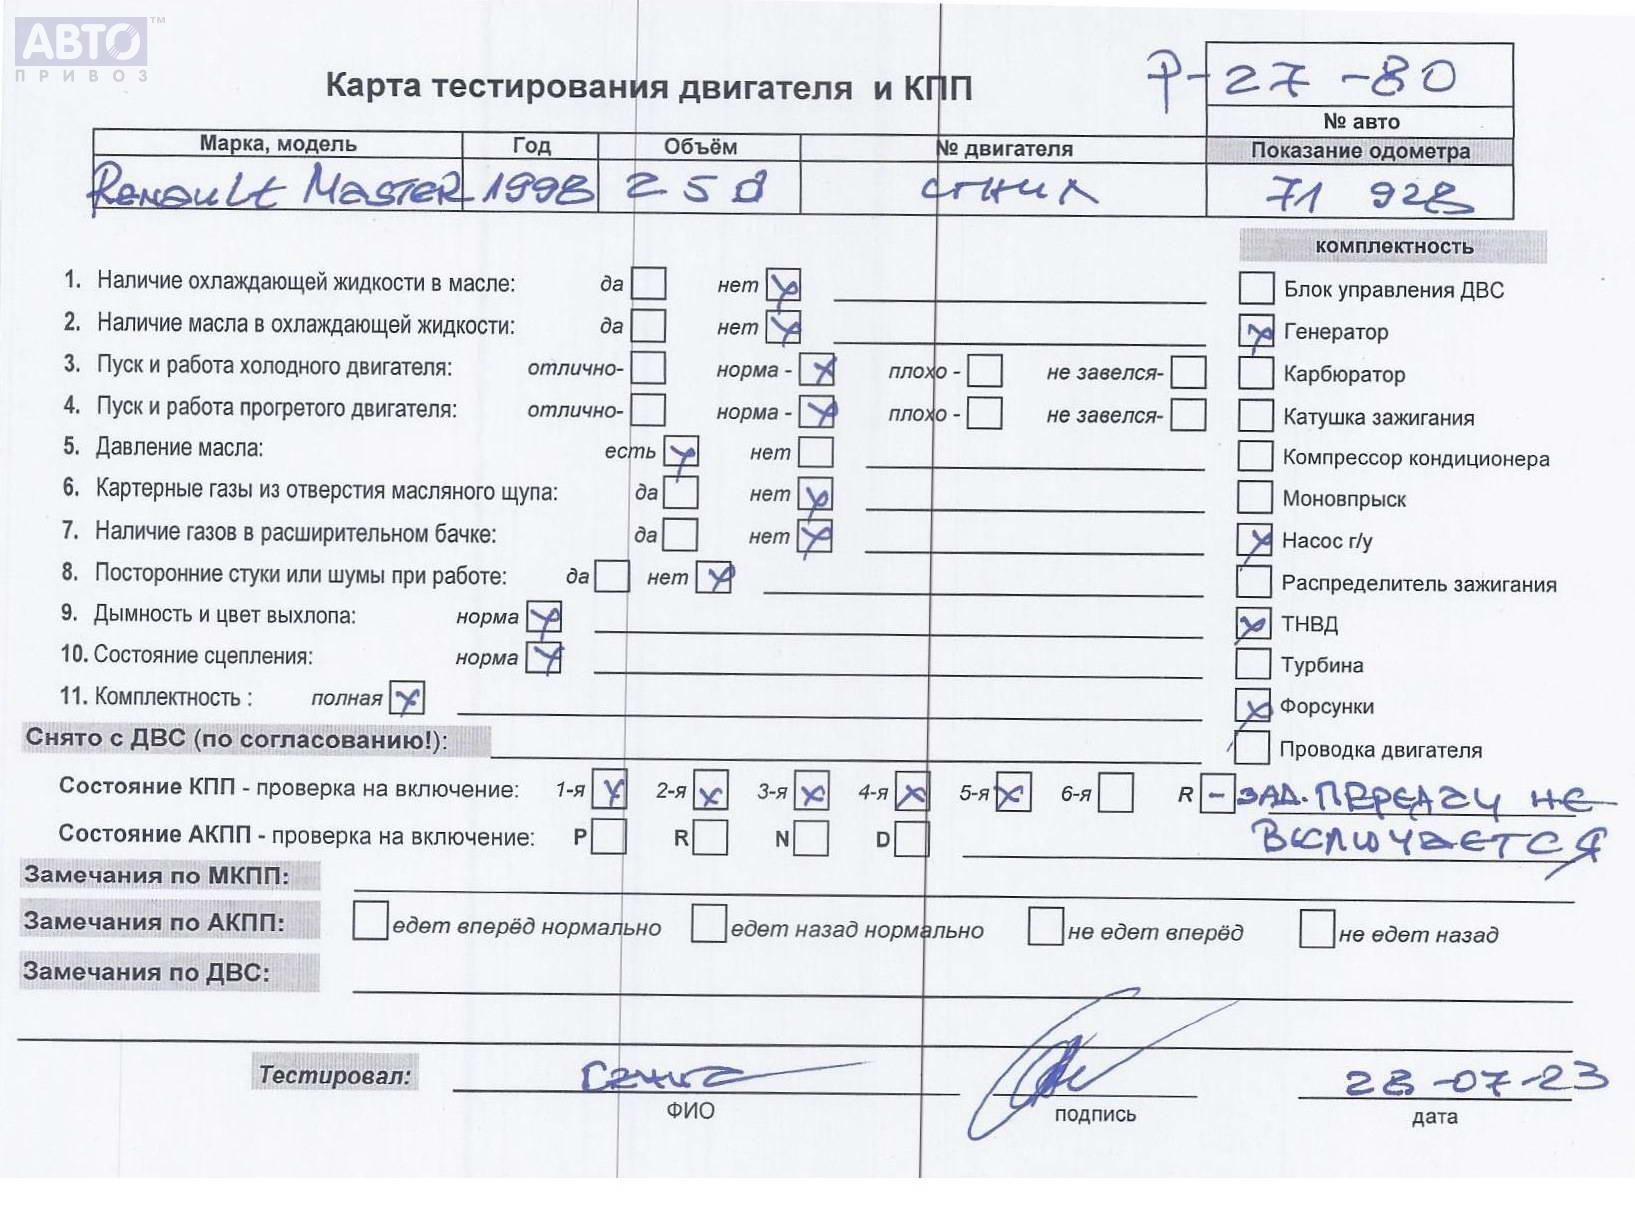 АВТО™
ПРИВОЗ
Карта тестирования двигателя и КПП
Р-27-80
№ авто
Марка, модель Год Объём № двигателя Показание одометра
Renault Master 1998 2 5 d сгнил 71 928
комплектность
1. Наличие охлаждающей жидкости в масле: да нет
Блок управления ДВС
2. Наличие масла в охлаждающей жидкости: да нет
Генератор
3. Пуск и работа холодного двигателя: отлично- норма - плохо - не завелся-
Карбюратор
4. Пуск и работа прогретого двигателя: отлично- норма - плохо - не завелся-
Катушка зажигания
5. Давление масла: есть нет
Компрессор кондиционера
6. Картерные газы из отверстия масляного щупа: да нет
Моновпрыск
7. Наличие газов в расширительном бачке: да нет
Насос г/у
8. Посторонние стуки или шумы при работе: да нет
Распределитель зажигания
9. Дымность и цвет выхлопа: норма
ТНВД
10. Состояние сцепления: норма
Турбина
11. Комплектность : полная
Форсунки
Снято с ДВС (по согласованию!):
Проводка двигателя
Состояние КПП - проверка на включение: 1-я 2-я 3-я 4-я 5-я 6-я R - ЗАД. ПЕРЕДАЧУ НЕ
ВКЛЮЧАЕТСЯ
Состояние АКПП - проверка на включение: P R N D
Замечания по МКПП:
Замечания по АКПП: едет вперёд нормально едет назад нормально не едет вперёд не едет назад
Замечания по ДВС:
Тестировал: 28-07-23
ФИО подпись дата